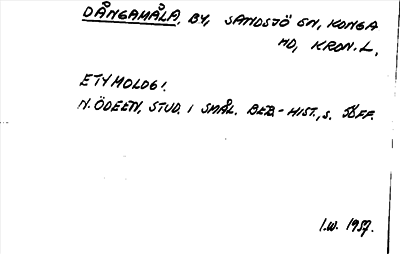 DÅNGAMÅLA, BY, SANDSJÖ SN, KONGA
HD, KRON. L.
ETYMOLOGI.
N. ÖDEEN, STUD. I SMÅL. BEB.-HIST., s. 58 FF.
I.W. 1957.